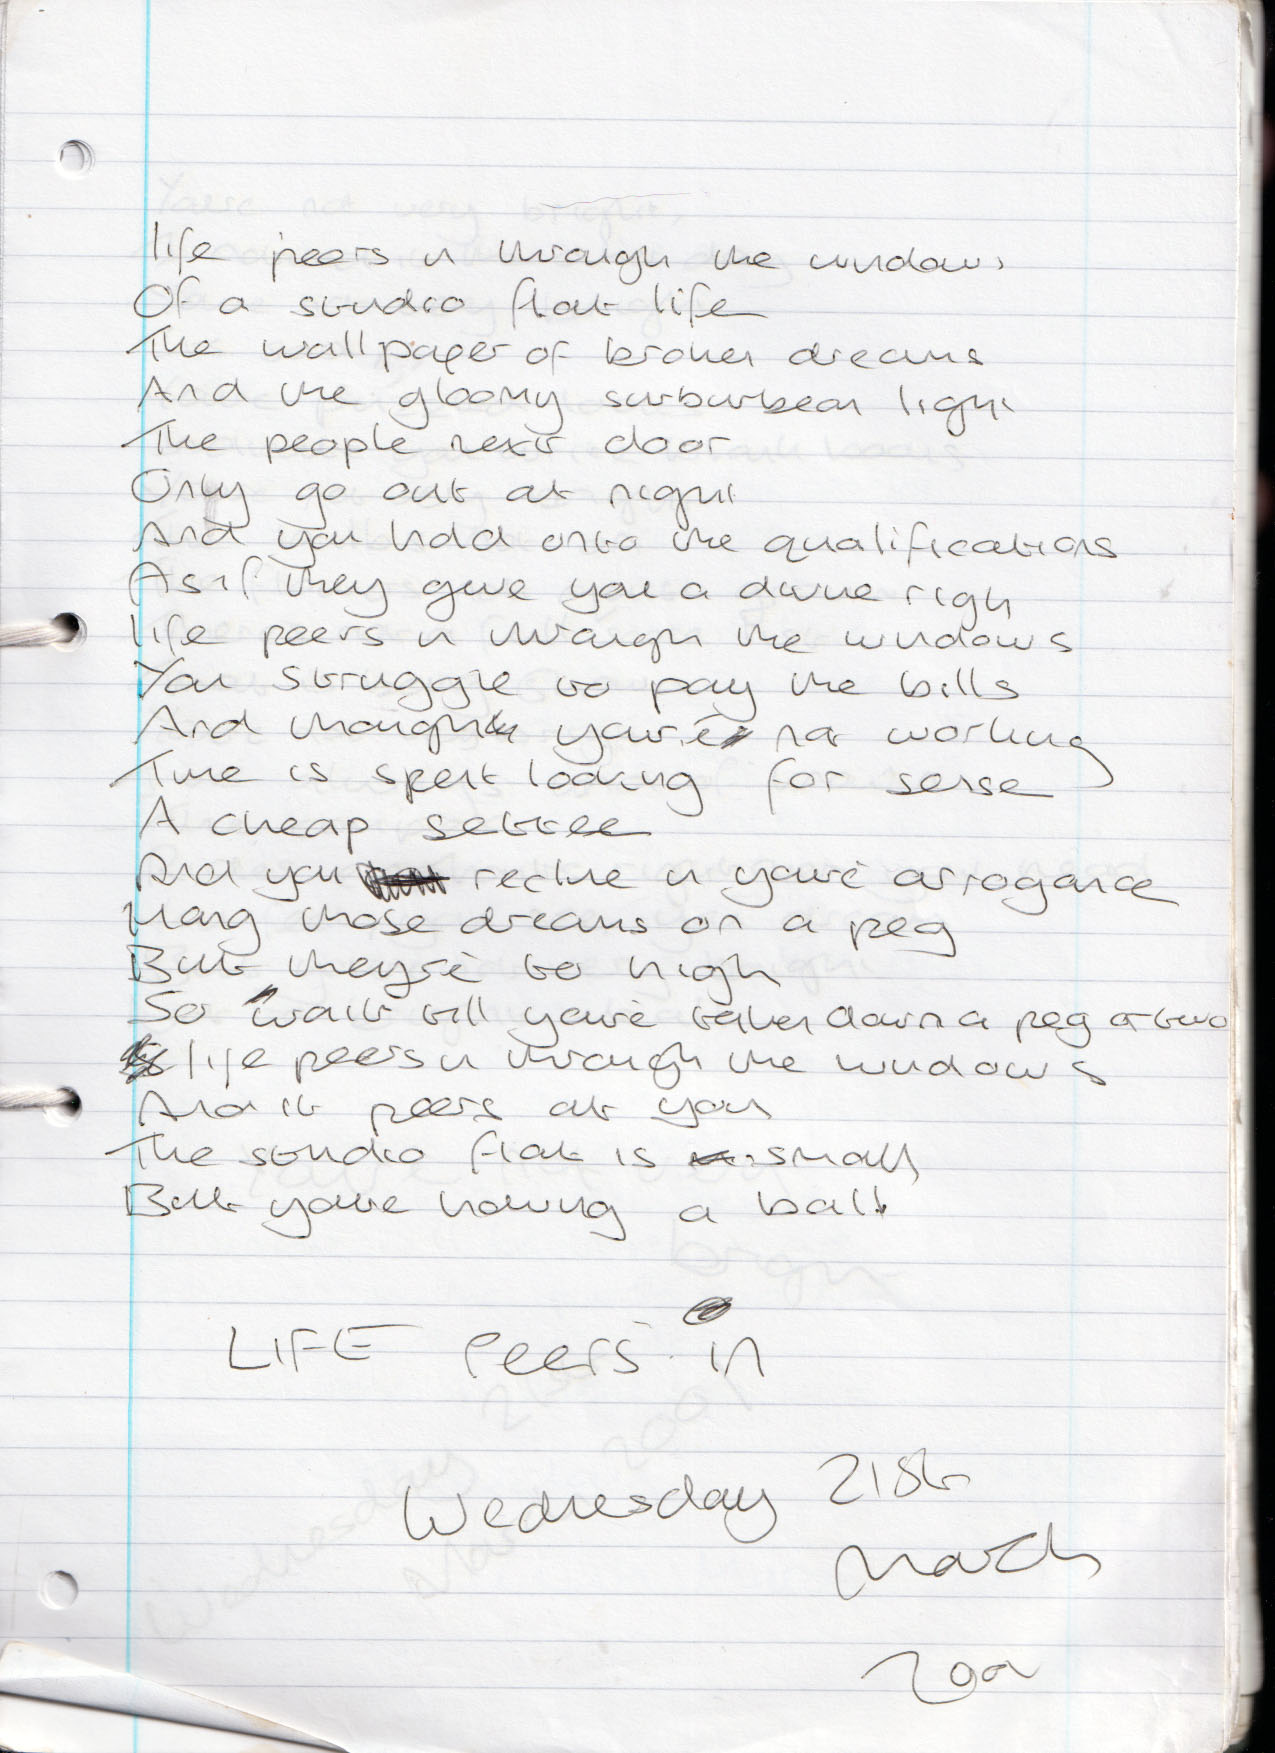 life peers in through the windows
Of a studio flat life
The wallpaper of broken dreams
And the gloomy surburbean light
The people next door
Only go out at night
And you hold onto the qualifications
As if they give you a divine right
life peers in through the windows
You struggle to pay the bills
And though you're not working
Time is spent looking for sense
A cheap settee
And you recline in you're arrogance
Hang those dreams on a peg
But they're to high
So wait till you're taken down a peg or two
life peers in through the windows
And it peers at you
The studio flat is small
But youre having a ball
LIFE Peers in
Wednesday 21st
March